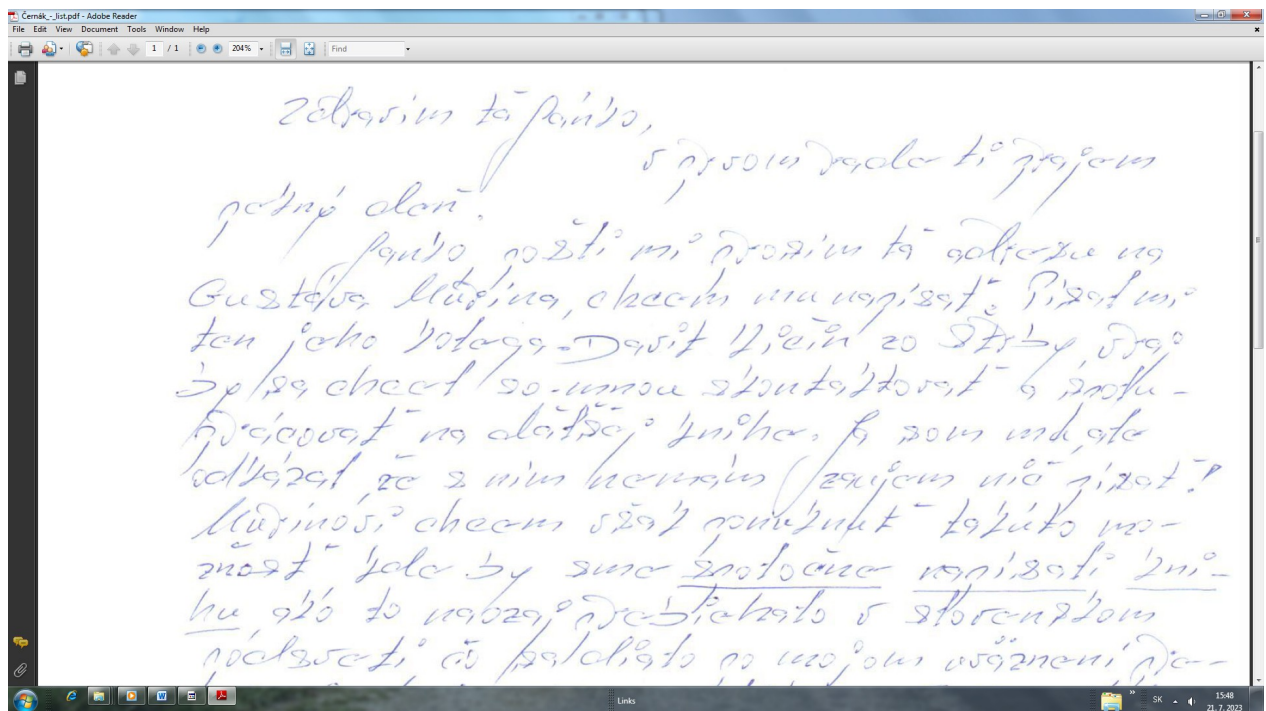 Černák_-_list.pdf - Adobe Reader
File Edit View Document Tools Window Help
1 / 1 204% Find
Zdravím ťa Paňko,
v prvom rade ti prajem
pekný deň.
Paňko pošli mi prosím ťa adresu na
Gustáva Murína, chcem mu napísať. Písal mi
ten jeho kolega - David Ličin zo Štrby, vraj
by sa chcel so-mnou skontaktovať a spolu-
pracovať na ďalšej knihe. Ja som mu ale
odkázal, že s ním nemám záujem nič písať!
Murínovi chcem však ponúknuť takúto mo-
žnosť, kde by sme spoločne napísali kni-
hu ako to naozaj prebiehalo v slovenskom
podsvetí čo sa dialo po mojom uväznení
Links
SK 15:48
21. 7. 2023